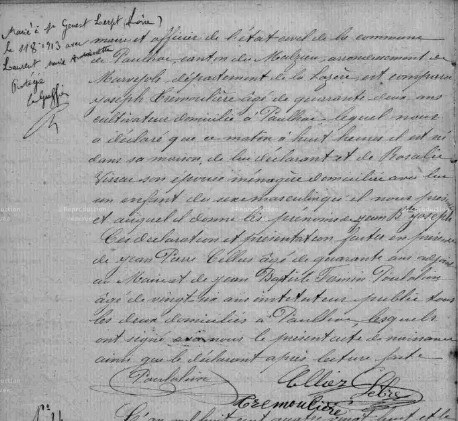 Marié à St Genest Lerpt (Loire)
le 11 8bre 1913 avec
Laurent Marie Antoinette
Le Greffier
maire et officier de l'état civil de la commune
de Paulhac, canton du Malzieu, arrondissement de
Marvejols, département de la Lozère, est comparu
Joseph Crémoulière âgé de quarante deux ans
cultivateur domicilié à Paulhac, lequel nous
a déclaré que ce matin à huit heures il est né
dans sa maison, de lui déclarant et de Rosalie
son épouse ménagère domiciliée avec lui
un enfant du sexe masculin qu'il nous présente
et auquel il donne les prénoms de Jean Bte Joseph
Ces déclaration et présentation faites en présence
de Jean Pierre Cellier âgé de quarante ans adjoint
au Maire et de Jean Baptiste Firmin Poulalion
âgé de vingt six ans instituteur public tous
les deux domiciliés à Paulhac, lesquels
ont signé avec nous le présent acte de naissance
ainsi que le déclarant après lecture faite
Poulalion Cellier
Crémoulière
L'an mil huit cent quatre vingt huit et le